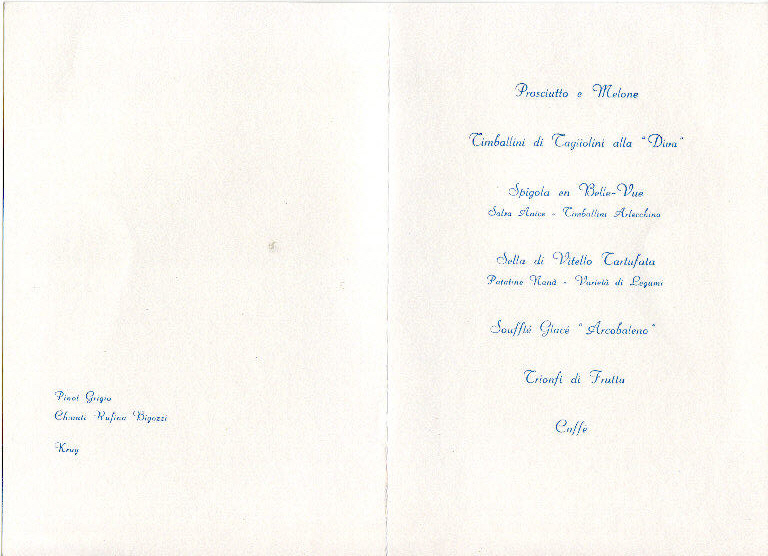 Pinot Grigio
Chianti Rufina Bigozzi
Krug
Prosciutto e Melone
Timballini di Tagliolini alla "Diva"
Spigola en Belle-Vue
Salsa Anice - Timballini Arlecchino
Sella di Vitello Tartufata
Patatine Nanà - Varietà di Legumi
Soufflé Glacé "Arcobaleno"
Trionfi di Frutta
Caffe